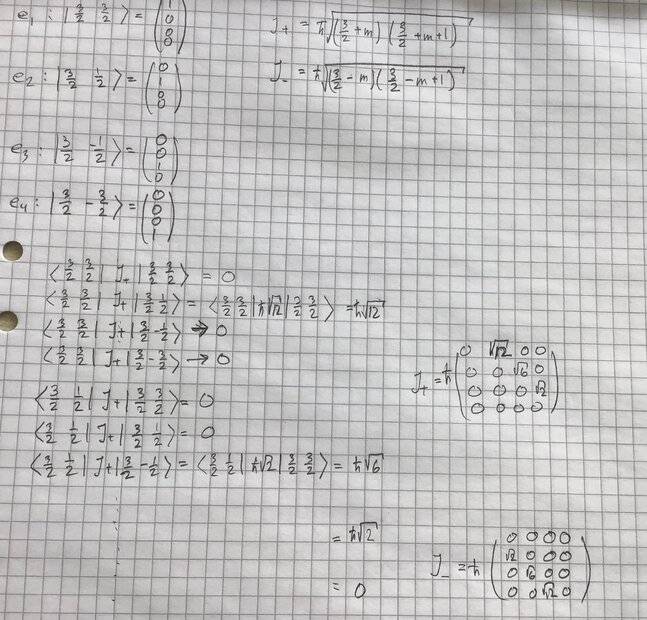 e₁ : |3/2 3/2⟩ = (1 0 0 0)
J₊ = ħ√((3/2 + m)(3/2 + m + 1))
e₂ : |3/2 1/2⟩ = (0 1 0 0)
J₋ = ħ√((3/2 − m)(3/2 − m + 1))
e₃ : |3/2 −1/2⟩ = (0 0 1 0)
e₄ : |3/2 −3/2⟩ = (0 0 0 1)
⟨3/2 3/2| J₊ |3/2 3/2⟩ = 0
⟨3/2 3/2| J₊ |3/2 1/2⟩ = ⟨3/2 3/2| ħ√12 |3/2 3/2⟩ = ħ√12
⟨3/2 3/2| J₊ |3/2 −1/2⟩ → 0
⟨3/2 3/2| J₊ |3/2 −3/2⟩ → 0
J₊ = ħ
0 √12 0 0
0 0 √6 0
0 0 0 √2
0 0 0 0
⟨3/2 1/2| J₊ |3/2 3/2⟩ = 0
⟨3/2 1/2| J₊ |3/2 1/2⟩ = 0
⟨3/2 1/2| J₊ |3/2 −1/2⟩ = ⟨3/2 1/2| ħ√2 |3/2 3/2⟩ = ħ√6
= ħ√2
= 0
J₋ = ħ
0 0 0 0
√2 0 0 0
0 √6 0 0
0 0 √12 0